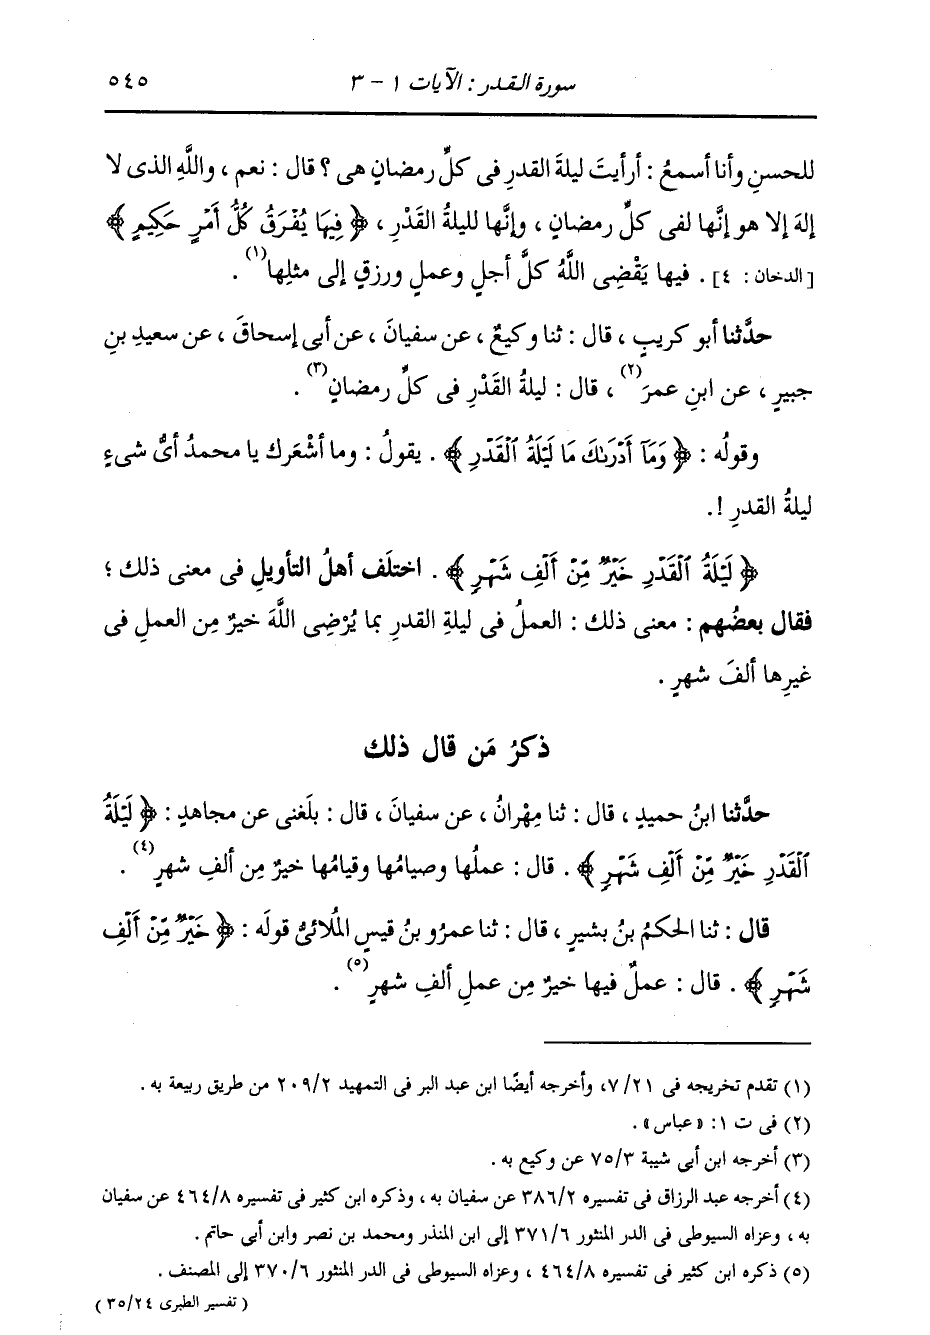 سورة القدر : الآيات ١ - ٣ ٥٤٥
للحسنِ وأنا أسمعُ : أرأيتَ ليلةَ القدرِ فى كلِّ رمضانٍ هى ؟ قال : نعم ، واللَّهِ الذى لا
إلهَ إلا هو إنَّها لفى كلِّ رمضانٍ ، وإنَّها لليلةُ القَدْرِ ، ﴿ فِيهَا يُفْرَقُ كُلُّ أَمْرٍ حَكِيمٍ ﴾
[ الدخان : ٤] . فيها يَقْضِى اللَّهُ كلَّ أجلٍ وعملٍ ورزقٍ إلى مثلِها(١) .
حدَّثنا أبو كريبٍ ، قال : ثنا وكيعٌ ، عن سفيانَ ، عن أبى إسحاقَ ، عن سعيدِ بنِ
جبيرٍ ، عن ابنِ عمرَ(٢) ، قال : ليلةُ القَدْرِ فى كلِّ رمضانٍ(٣) .
وقولُه : ﴿ وَمَآ أَدْرَىٰكَ مَا لَيْلَةُ ٱلْقَدْرِ ﴾ . يقولُ : وما أشْعَرك يا محمدُ أىُّ شىءٍ
ليلةُ القدرِ !.
﴿ لَيْلَةُ ٱلْقَدْرِ خَيْرٌ مِّنْ أَلْفِ شَهْرٍ ﴾ . اختلَف أهلُ التأويلِ فى معنى ذلك ؛
فقال بعضُهم : معنى ذلك : العملُ فى ليلةِ القدرِ بما يُرْضِى اللَّهَ خيرٌ مِن العملِ فى
غيرِها ألفَ شهرٍ .
ذكرُ مَن قال ذلك
حدَّثنا ابنُ حميدٍ ، قال : ثنا مِهْرانُ ، عن سفيانَ ، قال : بلَغنى عن مجاهدٍ : ﴿ لَيْلَةُ
ٱلْقَدْرِ خَيْرٌ مِّنْ أَلْفِ شَهْرٍ ﴾ . قال : عملُها وصيامُها وقيامُها خيرٌ مِن ألفِ شهرٍ(٤) .
قال : ثنا الحكمُ بنُ بشيرٍ ، قال : ثنا عمرُو بنُ قيسٍ المُلائىُّ قولَه : ﴿ خَيْرٌ مِّنْ أَلْفِ
شَهْرٍ ﴾ . قال : عملٌ فيها خيرٌ مِن عملِ ألفِ شهرٍ(٥) .
(١) تقدم تخريجه فى ٧/٢١، وأخرجه أيضًا ابن عبد البر فى التمهيد ٢٠٩/٢ من طريق ربيعة به .
(٢) فى ت ١: «عباس» .
(٣) أخرجه ابن أبى شيبة ٧٥/٣ عن وكيع به .
(٤) أخرجه عبد الرزاق فى تفسيره ٣٨٦/٢ عن سفيان به ، وذكره ابن كثير فى تفسيره ٤٦٤/٨ عن سفيان
به ، وعزاه السيوطى فى الدر المنثور ٣٧١/٦ إلى ابن المنذر ومحمد بن نصر وابن أبى حاتم .
(٥) ذكره ابن كثير فى تفسيره ٤٦٤/٨ ، وعزاه السيوطى فى الدر المنثور ٣٧٠/٦ إلى المصنف .
( تفسير الطبرى ٣٥/٢٤ )